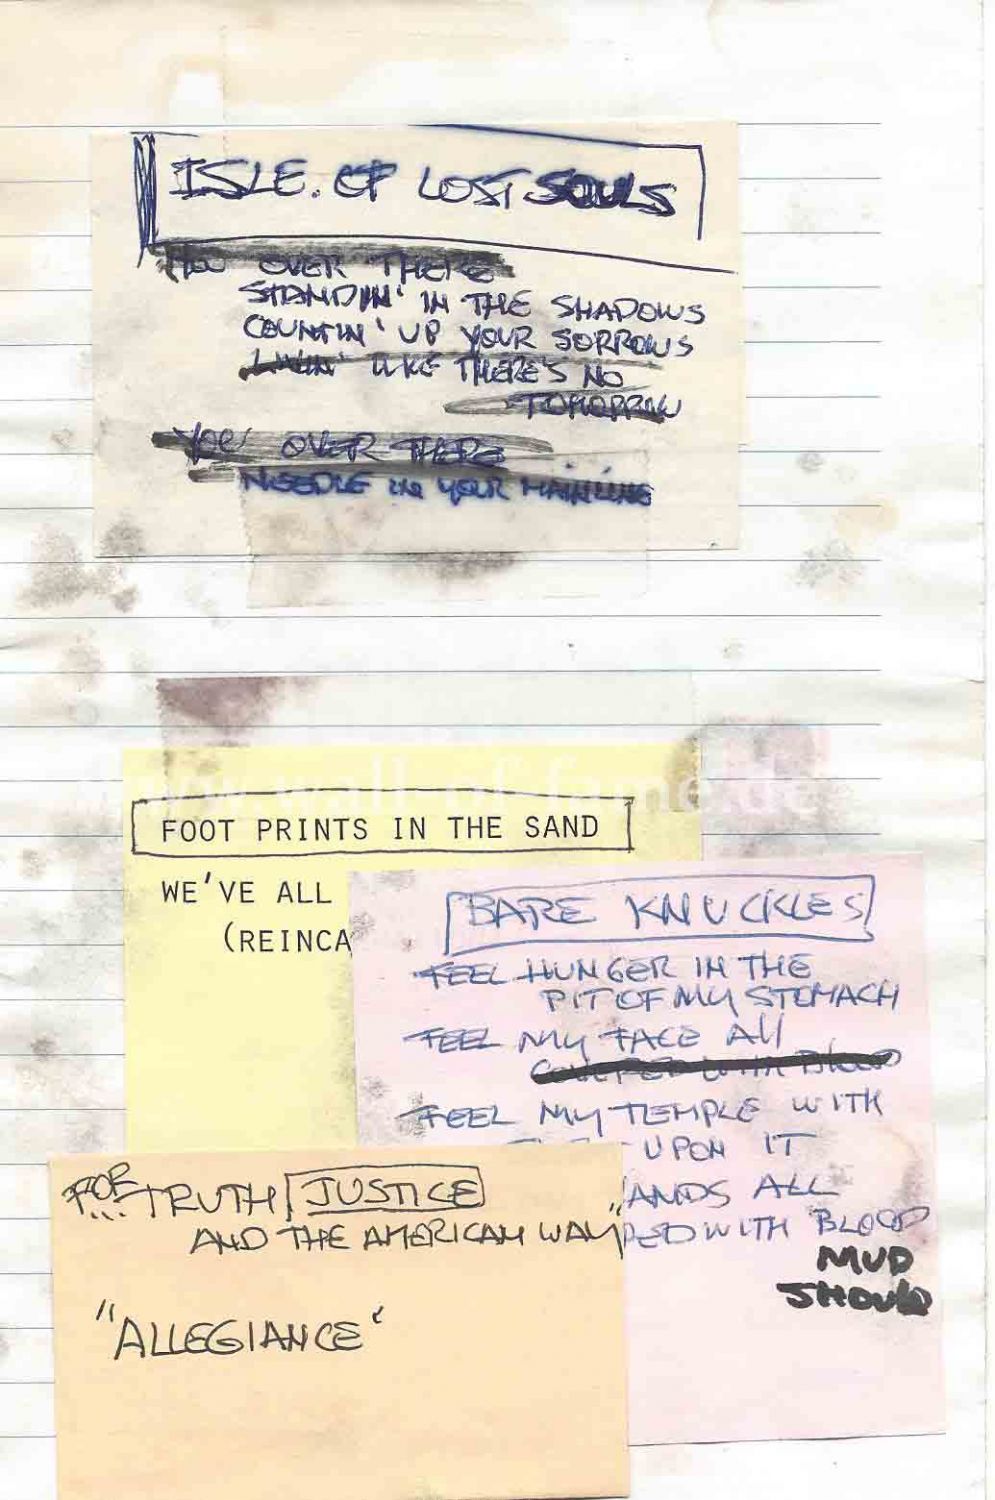 ISLE. OF LOST SOULS
YOU OVER THERE
STANDIN' IN THE SHADOWS
COUNTIN' UP YOUR SORROWS
LIVIN' LIKE THERE'S NO
TOMORROW
YOU OVER THERE
NEEDLE IN YOUR MAINLINE
www.wall-of-fame.de
FOOT PRINTS IN THE SAND
WE'VE ALL
(REINCA
BARE KNUCKLES
FEEL HUNGER IN THE
PIT OF MY STOMACH
FEEL MY FACE All
COVERED WITH Blood
FEEL MY TEMPLE WITH
UPON IT
ANDS ALL
PED WITH BLOOD
MUD
SHOULD
FOR
... TRUTH JUSTICE
AND THE AMERICAN WAY"
"ALLEGIANCE"